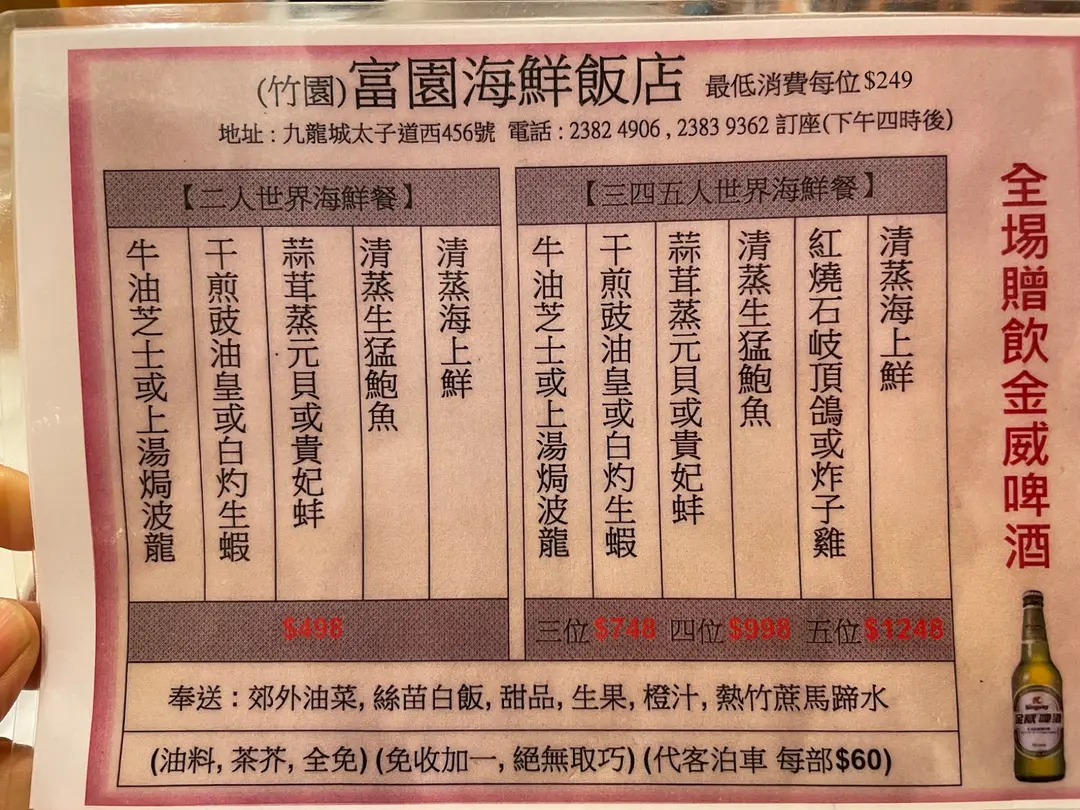 (竹園)富園海鮮飯店 最低消費每位$249
地址 : 九龍城太子道西456號 電話 : 2382 4906 , 2383 9362 訂座(下午四時後)
【二人世界海鮮餐】
牛油芝士或上湯焗波龍
干煎豉油皇或白灼生蝦
蒜茸蒸元貝或貴妃蚌
清蒸生猛鮑魚
清蒸海上鮮
$498
【三四五人世界海鮮餐】
牛油芝士或上湯焗波龍
干煎豉油皇或白灼生蝦
蒜茸蒸元貝或貴妃蚌
清蒸生猛鮑魚
紅燒石岐頂鴿或炸子雞
清蒸海上鮮
三位 $748 四位 $998 五位 $1248
奉送 : 郊外油菜, 絲苗白飯, 甜品, 生果, 橙汁, 熱竹蔗馬蹄水
(油料, 茶芥, 全免) (免收加一, 絕無取巧) (代客泊車 每部$60)
全場贈飲金威啤酒
Kingway
金威啤酒